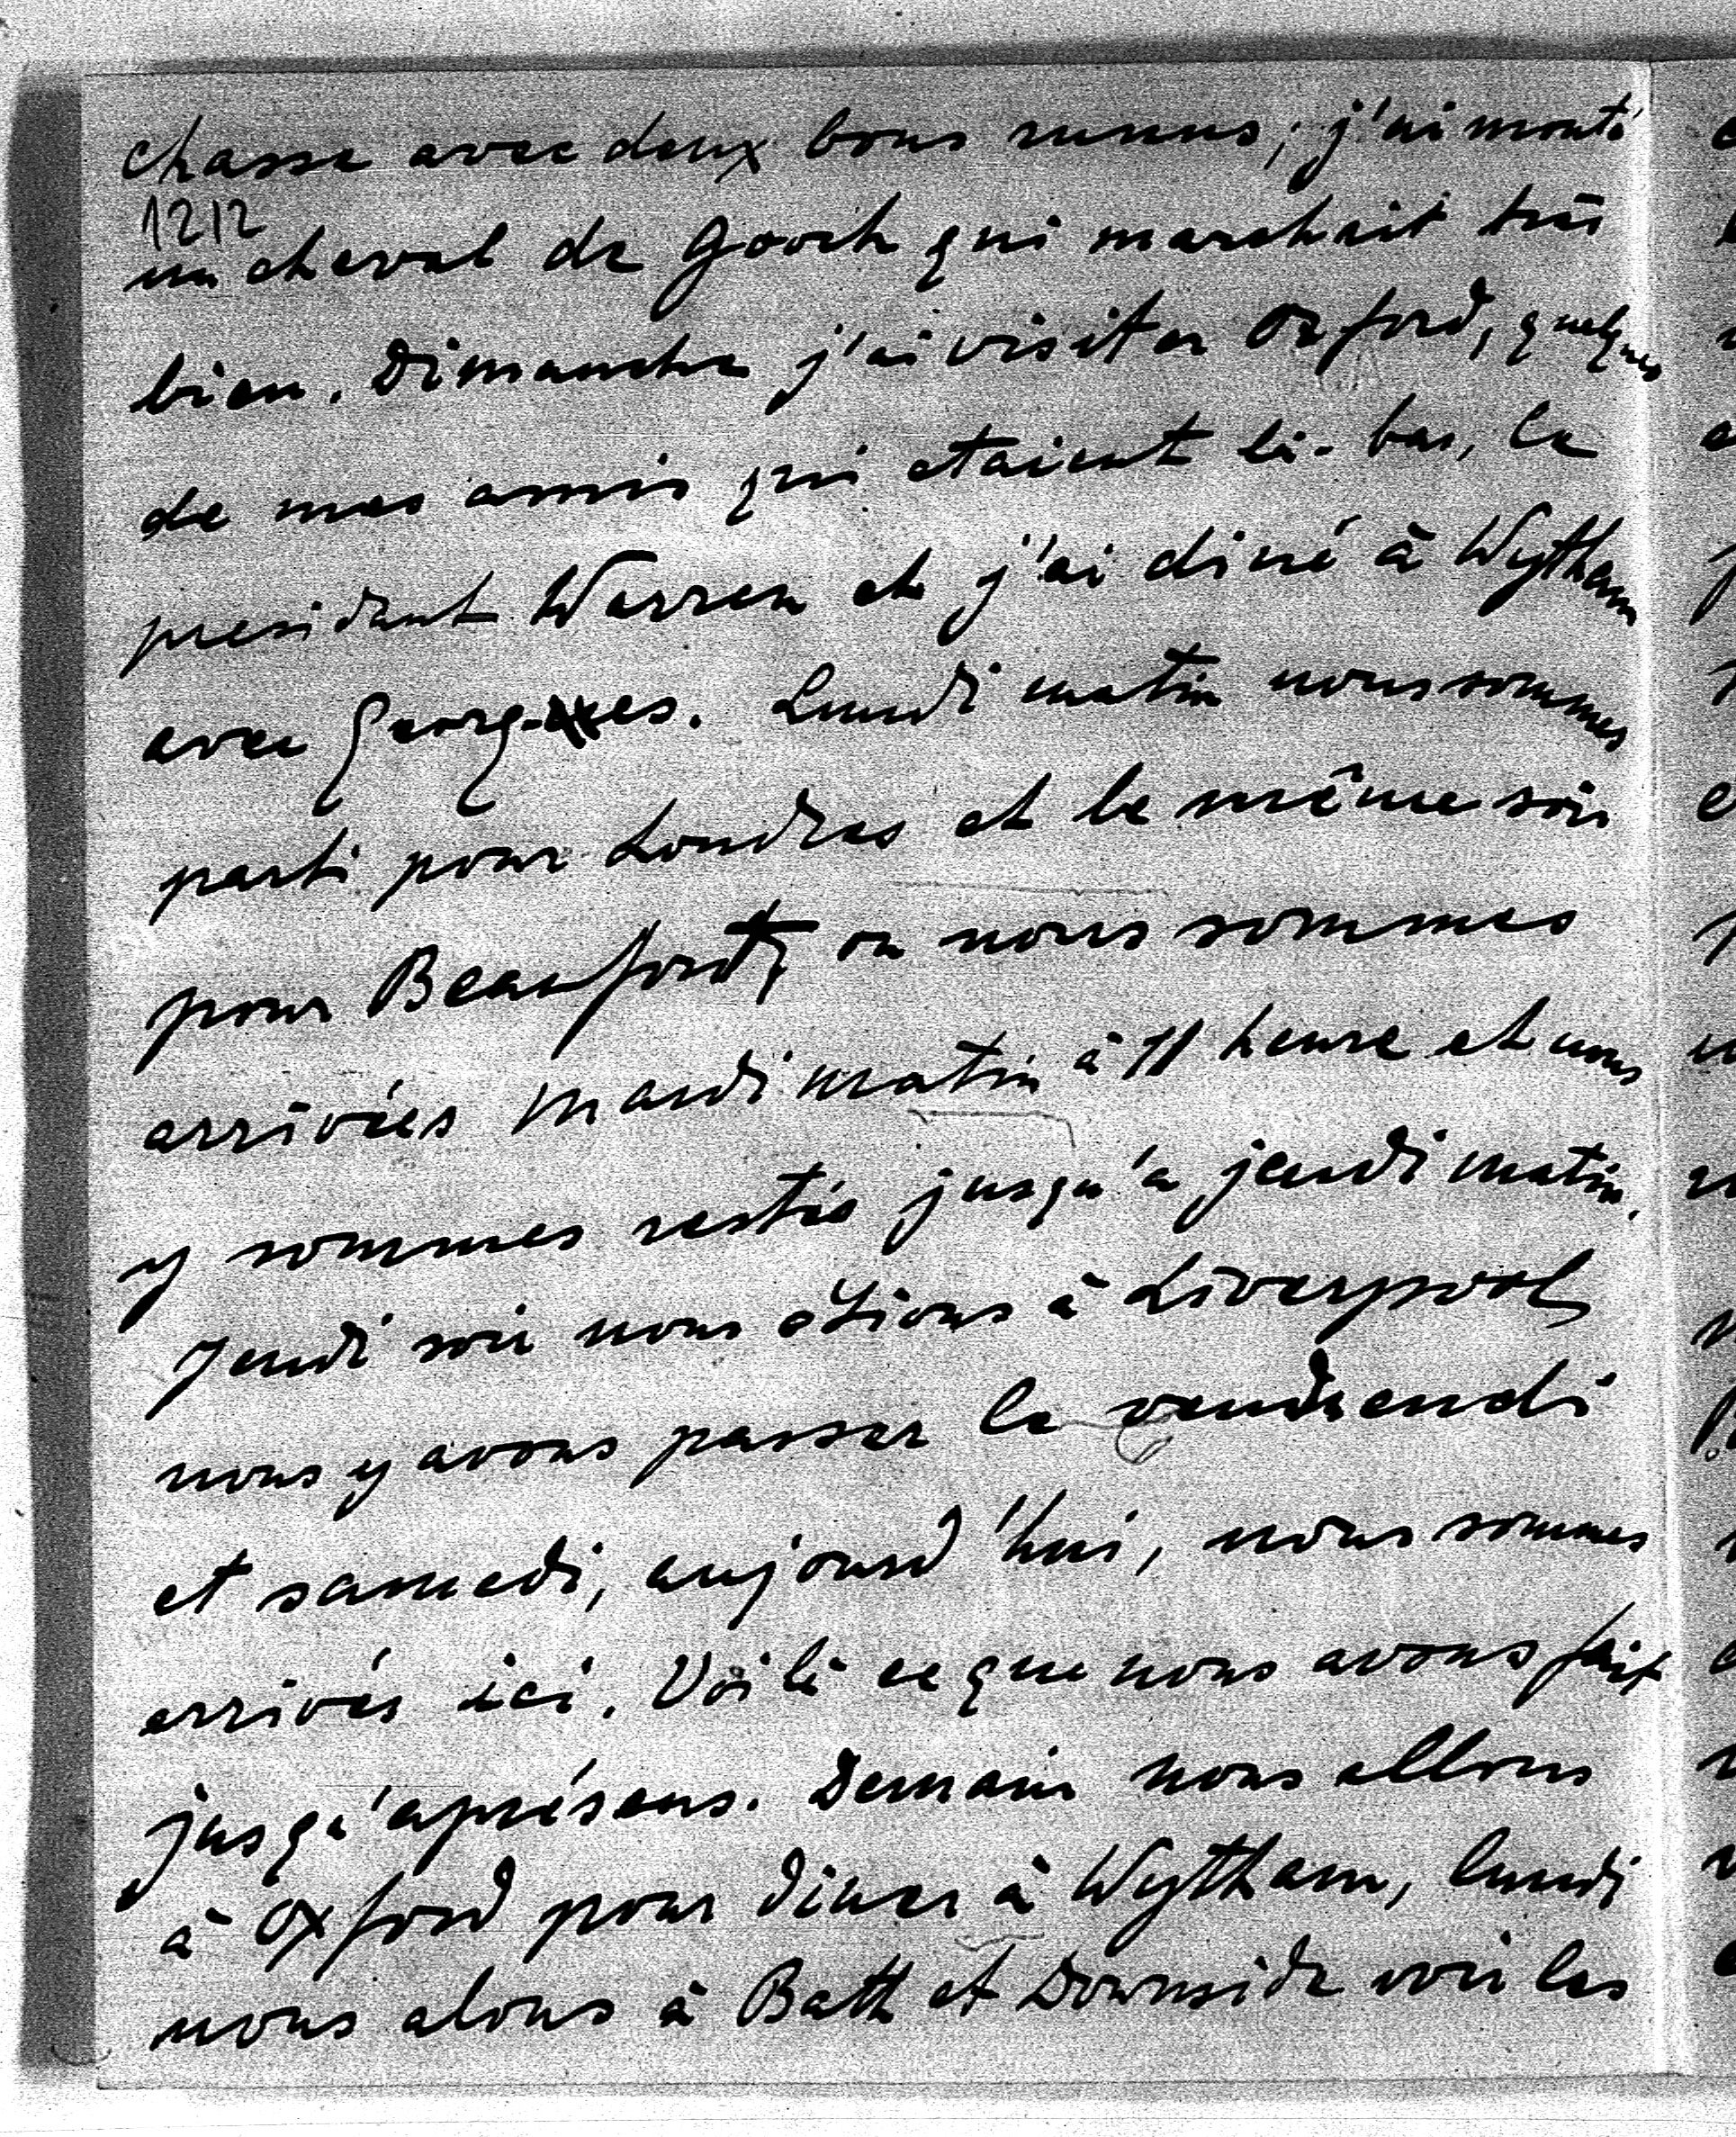 chasse avec deux bons runns; j'ai monté
1212
un cheval de Gooch qui marchait très
bien. Dimanche j'ai visiter Oxford, quelques
de mes amis qui etaient là-bas, le
president Warren et j'ai diné à Wytham
avec Georges. Lundi matin nous sommes
parti pour Londres et le même soir
pour Beaufort, ou nous sommes
arrivées Mardi matin à 11 heure et nous
y sommes restés jusqu'a jeudi matin.
Jeudi soir nous étions à Liverpool,
nous y avons passer le vendrendi
et samedi, aujourd'hui, nous sommes
arrivés ici. Voilà ce que nous avons fait
jusqu'aprésens. Demain nous allons
à Oxford pour diner à Wytham, lundi
nous alons à Bath et Downside voir les